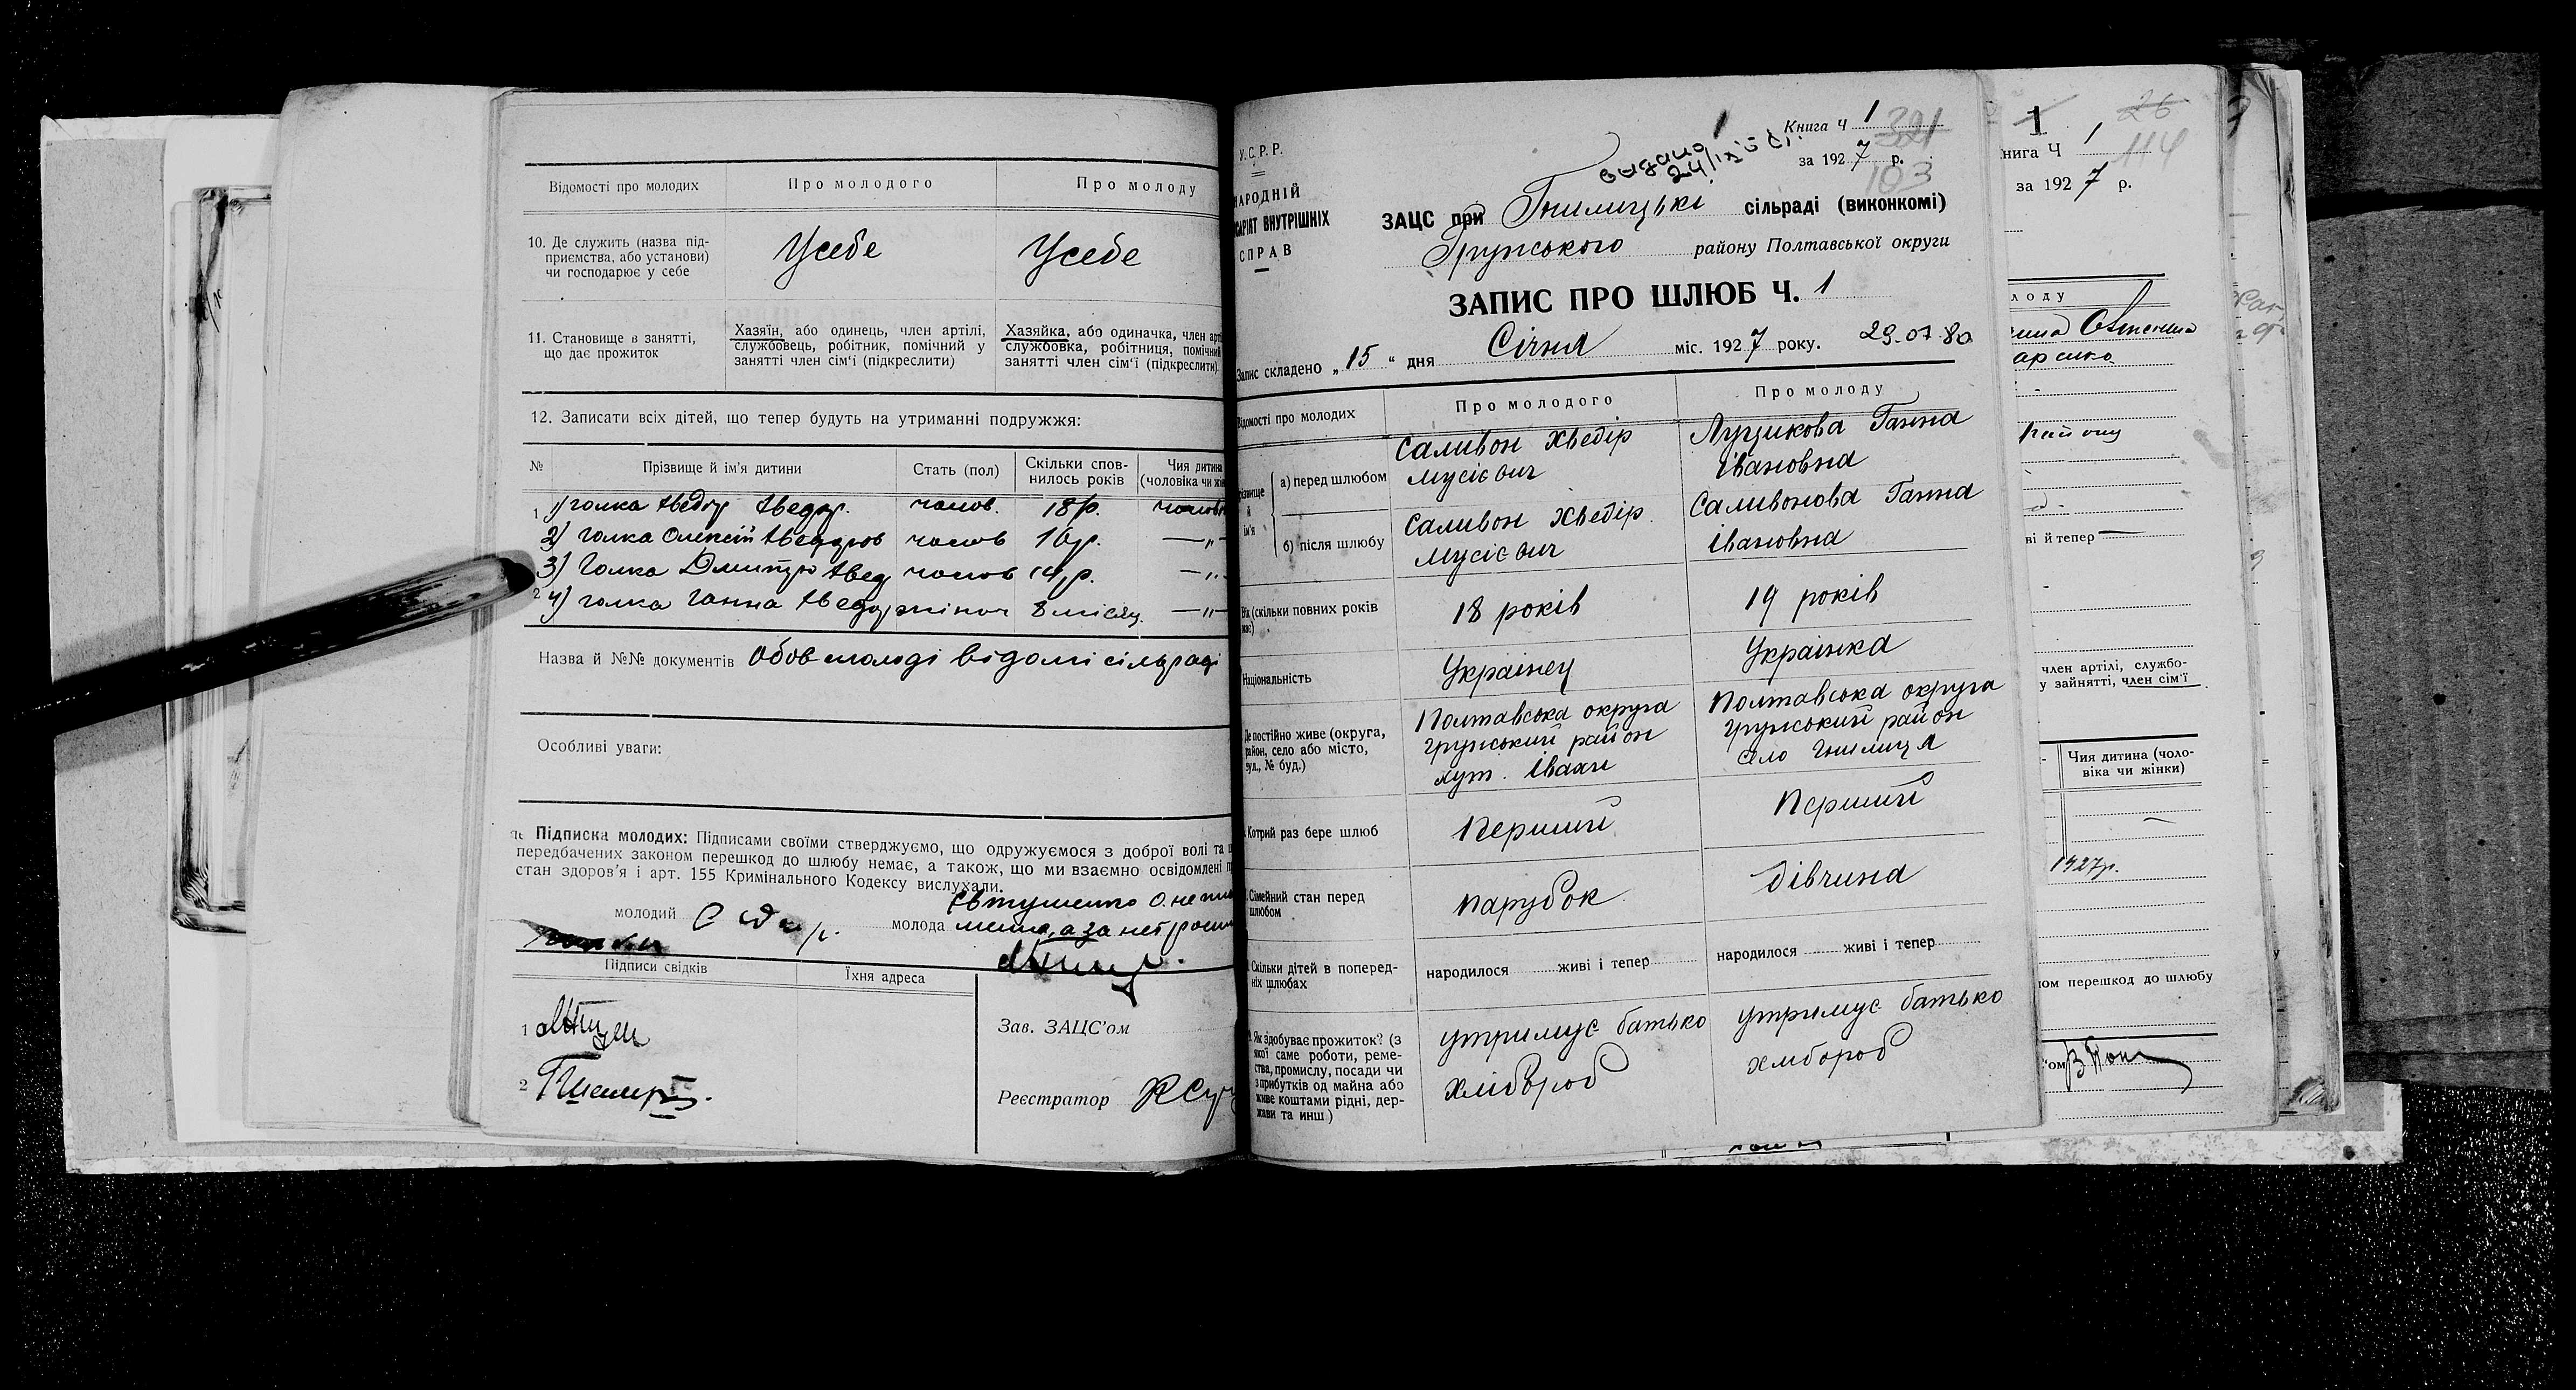 Відомості про молодих
Про молодого
Про молоду
10. Де служить (назва під-
приємства, або установи)
чи господарює у себе
Усебе
Усебе
11. Становище в занятті,
що дає прожиток
Хазяїн, або одинець, член артілі,
службовець, робітник, помічний у
занятті член сім'ї (підкреслити)
Хазяйка, або одиначка, член арті
службовка, робітниця, помічний
занятті член сім'ї (підкреслити)
12. Записати всіх дітей, що тепер будуть на утриманні подружжя:
№
Прізвище й ім'я дитини
Стать (пол)
Скільки спов-
нилось років
Чия дитина
(чоловіка чи жін
1 1) голка Хведір Хведор. чолов. 18 р. чолові
2) голка Олексій Хведоров чолов 16 р. —„—
3) Голка Дмитро Хвед чолов 14 р. —„—
2 4) голка Ганна Хведор жіноч 8 місяц. —„—
Назва й №№ документів Обов молоді відомі сільраді
Особливі уваги:
Підписка молодих: Підписами своїми стверджуємо, що одружуємося з доброї волі та
передбачених законом перешкод до шлюбу немає, а також, що ми взаємно освідомлені п
стан здоров'я і арт. 155 Кримінального Кодексу вислухали.
Євтушенко О. не
молодий
молода
а за неї
Підписи свідків
Їхня адреса
1
2
Зав. ЗАЦС'ом
Реєстратор
У.С.Р.Р.
НАРОДНІЙ
САРІЯТ ВНУТРІШНІХ
СПРАВ
1
Книга Ч 1
321
видано
24/
за 1927 р.
103
ЗАЦС при Гнилицькі сільраді (виконкомі)
Грунського району Полтавської округи
ЗАПИС ПРО ШЛЮБ Ч. 1
Запис складено „15“ дня Січня міс. 1927 року. 29.07.80
Відомості про молодих
Про молодого
Про молоду
Прізвище
й
ім'я
а) перед шлюбом
Саливон Хведір
Мусієвич
Луцикова Ганна
Івановна
б) після шлюбу
Саливон Хведір
Мусієвич
Саливонова Ганна
Івановна
Вік (скільки повних років
має)
18 років
19 років
Національність
Українец
Українка
Де постійно живе (округа,
район, село або місто,
вул., № буд.)
Полтавська округа
Грунський район
хут. Івахи
Полтавська округа
Грунський район
село Гнилиця
Котрий раз бере шлюб
Перший
Перший
Сімейний стан перед
шлюбом
парубок
дівчина
Скільки дітей в поперед-
ніх шлюбах
народилося живі і тепер
народилося живі і тепер
Як здобуває прожиток? (з
якої саме роботи, реме-
ства, промислу, посади чи
з прибутків од майна або
живе коштами рідні, дер-
жави та инш)
утримує батько
хлібороб
утримує батько
хлібороб
1
26
нига Ч 1
114
за 1927 р.
лоду
району
ві й тепер —
член артілі, службо-
у зайнятті, член сім'ї
Чия дитина (чоло-
віка чи жінки)
1927р.
ом перешкод до шлюбу
'ом